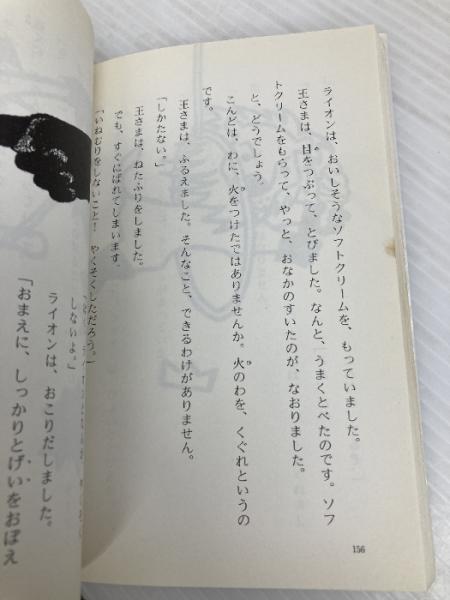 ライオンは、おいしそうなソフトクリームを、もっていました。
王さまは、目をつぶって、とびました。なんと、うまくとべたのです。ソフ
トクリームをもらって、やっと、おなかのすいたのが、なおりました。
と、どうでしょう。
こんどは、わに、火をつけたではありませんか。火のわを、くぐれというの
です。
王さまは、ふるえました。そんなこと、できるわけがありません。
「しかたない。」
王さまは、ねたふりをしました。
でも、すぐにばれてしまいます。
「いねむりをしないこと！　やくそくしただろう。」
しないよ。」
ライオンは、おこりだしました。
「おまえに、しっかりとげいをおぼえ
156